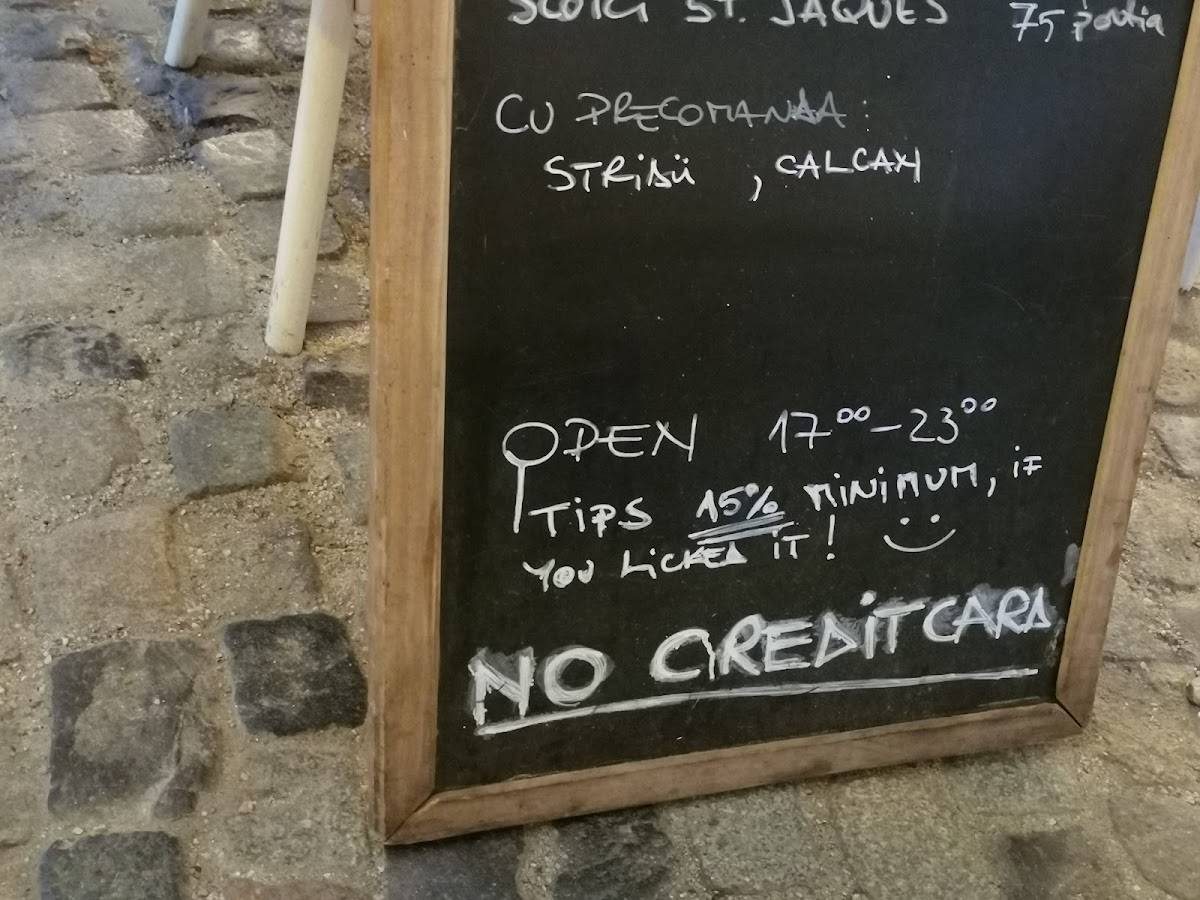 SCOICI ST. JAQUES 75 portia
CU PRECOMANDA:
STRIDII, CALCAN
OPEN 17⁰⁰-23⁰⁰
TIPS 15% MINIMUM, IF
YOU LICKED IT!
NO CREDIT CARD